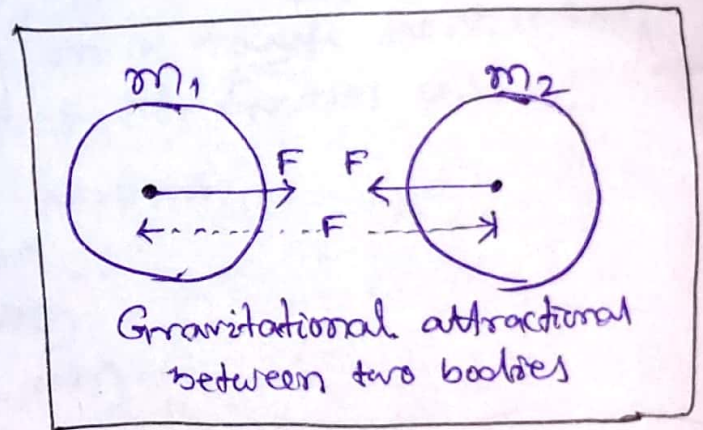 m1 m2
F F
F
Gravitational attractional
between two bodies